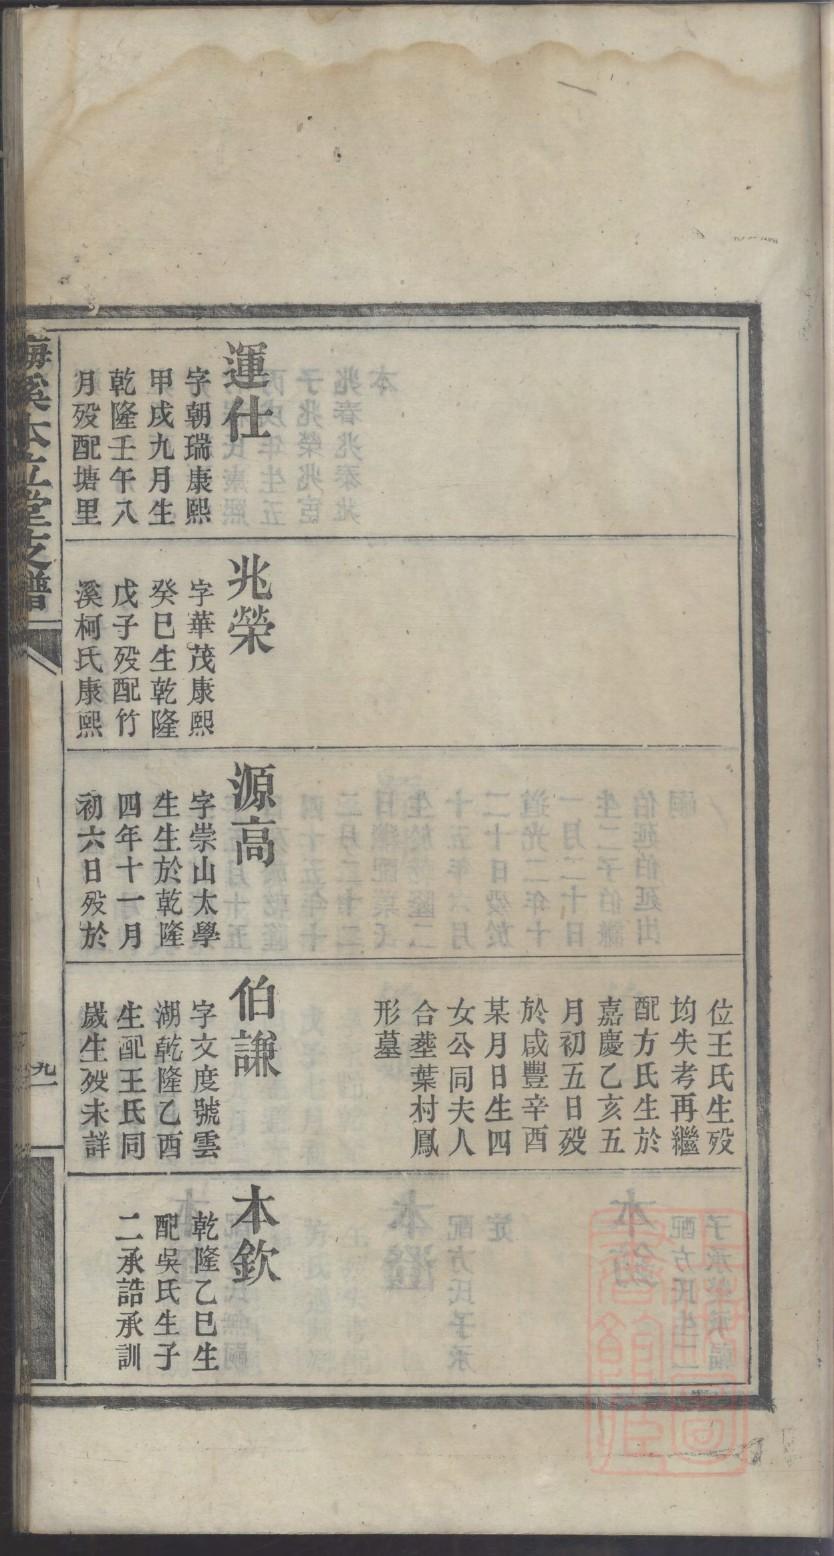 運仕
字朝瑞康熙
甲戌九月生
乾隆壬午八
月歿配塘里
兆榮
字華茂康熙
癸巳生乾隆
戊子歿配竹
溪柯氏康熙
源高
字崇山太學
生生於乾隆
四年十一月
初六日歿於
位王氏生歿
均失考再繼
配方氏生於
嘉慶乙亥五
月初五日歿
於咸豐辛酉
某月日生四
女公同夫人
合塟葉村鳳
形墓
伯謙
字文度號雲
湖乾隆乙酉
生配王氏同
歲生歿未詳
本欽
乾隆乙巳生
配吳氏生子
二承誥承訓
梅溪本立堂支譜
九一